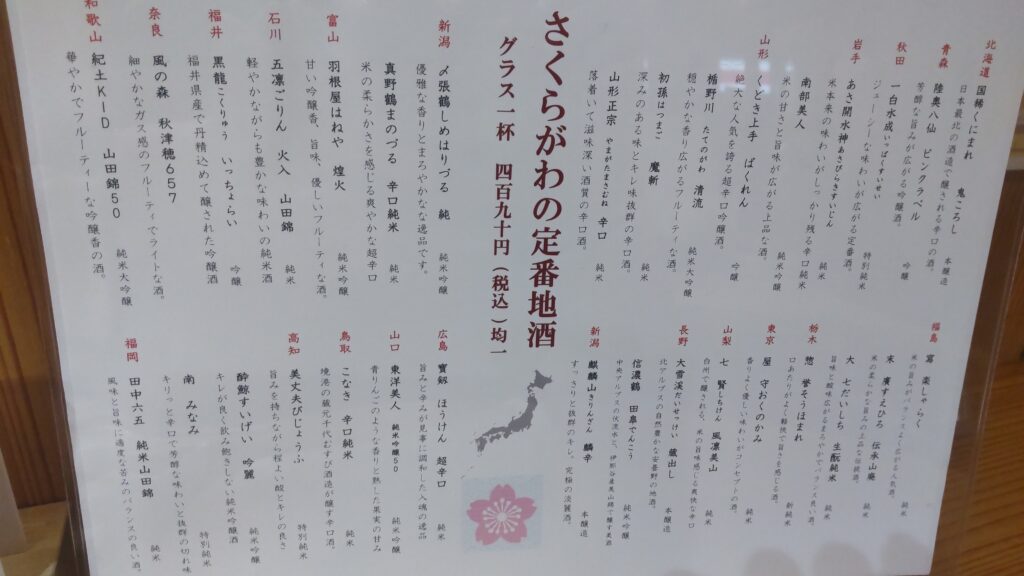 さくらがわの定番地酒
グラス一杯 四百九十円（税込）均一
北海道 国稀くにまれ 鬼ころし 本醸造
日本最北の酒造で醸される辛口の酒。
青森 陸奥八仙 ピンクラベル
芳醇な旨みが広がる吟醸酒。 吟醸
秋田 一白水成いっぱくすいせい
ジューシーな味わいが広がる定番酒。 特別純米
岩手 あさ開水神あさびらきすいじん
米本来の味わいがしっかり残る辛口純米 純米
南部美人
米の甘さと旨味が広がる上品な酒。 純米
山形 くどき上手 ばくれん
絶大な人気を誇る超辛口吟醸酒。 吟醸
楯野川 たてのがわ 清流
穏やかな香り広がるフルーティな酒。 純米大吟醸
初孫はつまご 魔斬
深みのある味とキレ味抜群の辛口酒。 純米
山形正宗 やまがたまさむね 辛口
落着いて滋味深い酒質の辛口酒。 純米
新潟 〆張鶴しめはりづる 純 純米吟醸
優雅な香りとまろやかな逸品です。
真野鶴まのづる 辛口純米 純米
米の柔らかさを感じる爽やかな超辛口
富山 羽根屋はねや 煌火 純米吟醸
甘い吟醸香、旨味、優しいフルーティな酒。
石川 五凛ごりん 火入 山田錦 純米
軽やかながらも豊かな味わいの純米酒
福井 黒龍こくりゅう いっちょらい 吟醸
福井県産で丹精込めて醸された吟醸酒
奈良 風の森 秋津穂657 純米
細やかなガス感のフルーティでライトな酒。
和歌山 紀土KID 山田錦50 純米大吟醸
華やかでフルーティーな吟醸香の酒。
福島 冩楽しゃらく 純米
米の旨みがバランスよく広がる人気酒。
末廣すえひろ 伝承山廃 純米
米の柔らかな旨みの上品な伝統酒。
大七だいしち 生酛純米 純米
旨味と酸味広がるまろやかでバランス良い酒。
栃木 惣誉そうほまれ
口あたりがよく軽快で旨さを感じる酒。
東京 屋守おくのかみ 純米
香りよく優しい味わいがコンセプトの酒。
山梨 七賢しちけん 風凛美山 純米
白州で醸される、米の旨味感じる爽快な辛口
長野 大雪渓だいせっけい 蔵出し 本醸造
北アルプスの自然豊かな安曇野の地酒。
信濃鶴 田皐でんこう 純米吟醸
中央アルプスの伏流水と、伊那谷産美山錦で醸す美酒
新潟 麒麟山きりんざん 麟辛 本醸造
すっきりと抜群のキレ。究極の淡麗酒。
広島 寶剱 ほうけん 超辛口 純米
旨みと辛みが見事に調和した入魂の逸品
山口 東洋美人 純米吟醸50 純米吟醸
青りんごのような香りと熟した果実の甘み
鳥取 こなき 辛口純米 純米
境港の蔵元千代むすび酒造が醸す辛口酒。
高知 美丈夫びじょうふ 特別純米
旨みを持ちながら程よい酸とキレの良さ
酔鯨すいげい 吟麗 純米吟醸
キレが良く飲み飽きしない純米吟醸酒
南 みなみ 特別純米
キリっと辛口で芳醇な味わいと抜群の切れ味
福岡 田中六五 純米山田錦 純米
風味と旨味に適度な苦みのバランスの良い酒。